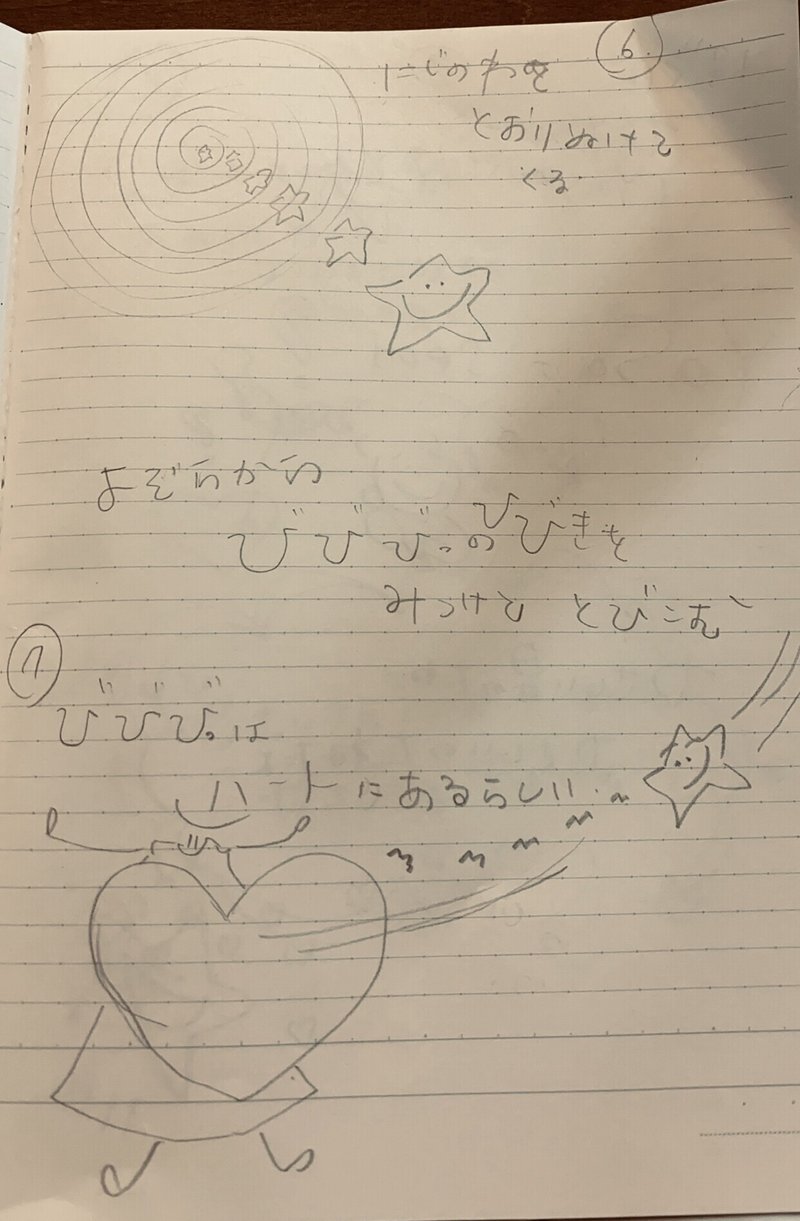 ⑥
にじのわを
とおりぬけて
くる
よぞらから
びびびっのひびきを
みつけて とびこむ
⑦
びびびっは
ハートにあるらしい